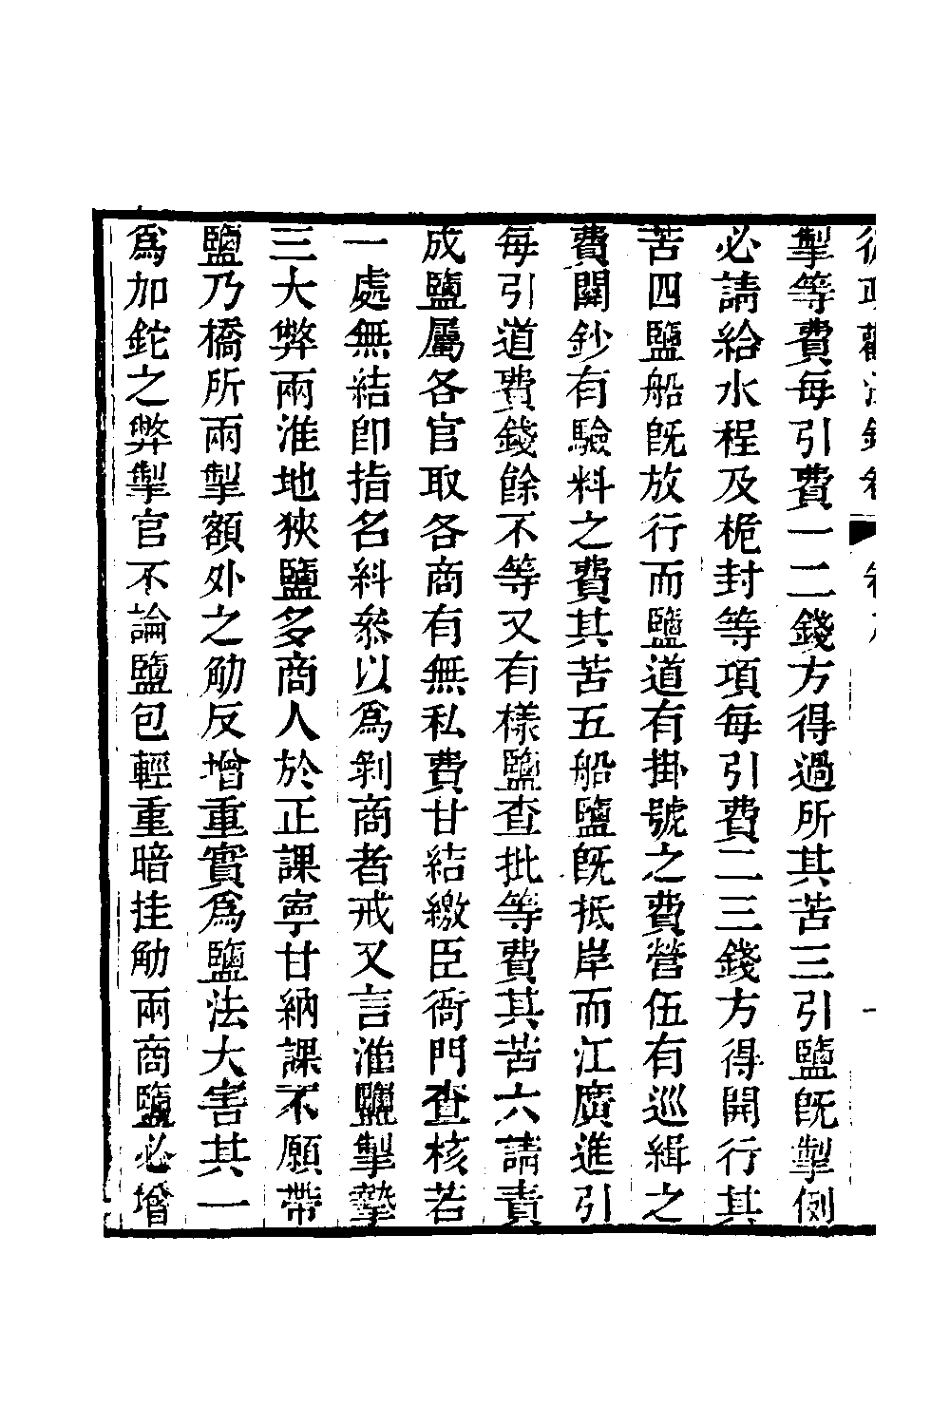 掣等費每引費一二錢方得過所其苦三引鹽旣掣側
必請給水程及桅封等項每引費二三錢方得開行其
苦四鹽船旣放行而鹽道有掛號之費營伍有巡緝之
費關鈔有驗料之費其苦五船鹽旣抵岸而江廣進引
每引道費錢餘不等又有樣鹽查批等費其苦六請責
成鹽屬各官取各商有無私費甘結繳臣衙門查核若
一處無結卽指名糾叅以爲剝商者戒又言淮鹽掣摯
三大弊兩淮地狹鹽多商人於正課寧甘納課不願帶
鹽乃橋所兩掣額外之觔反增重實爲鹽法大害其一
爲加鉈之弊掣官不論鹽包輕重暗挂觔兩商鹽必增